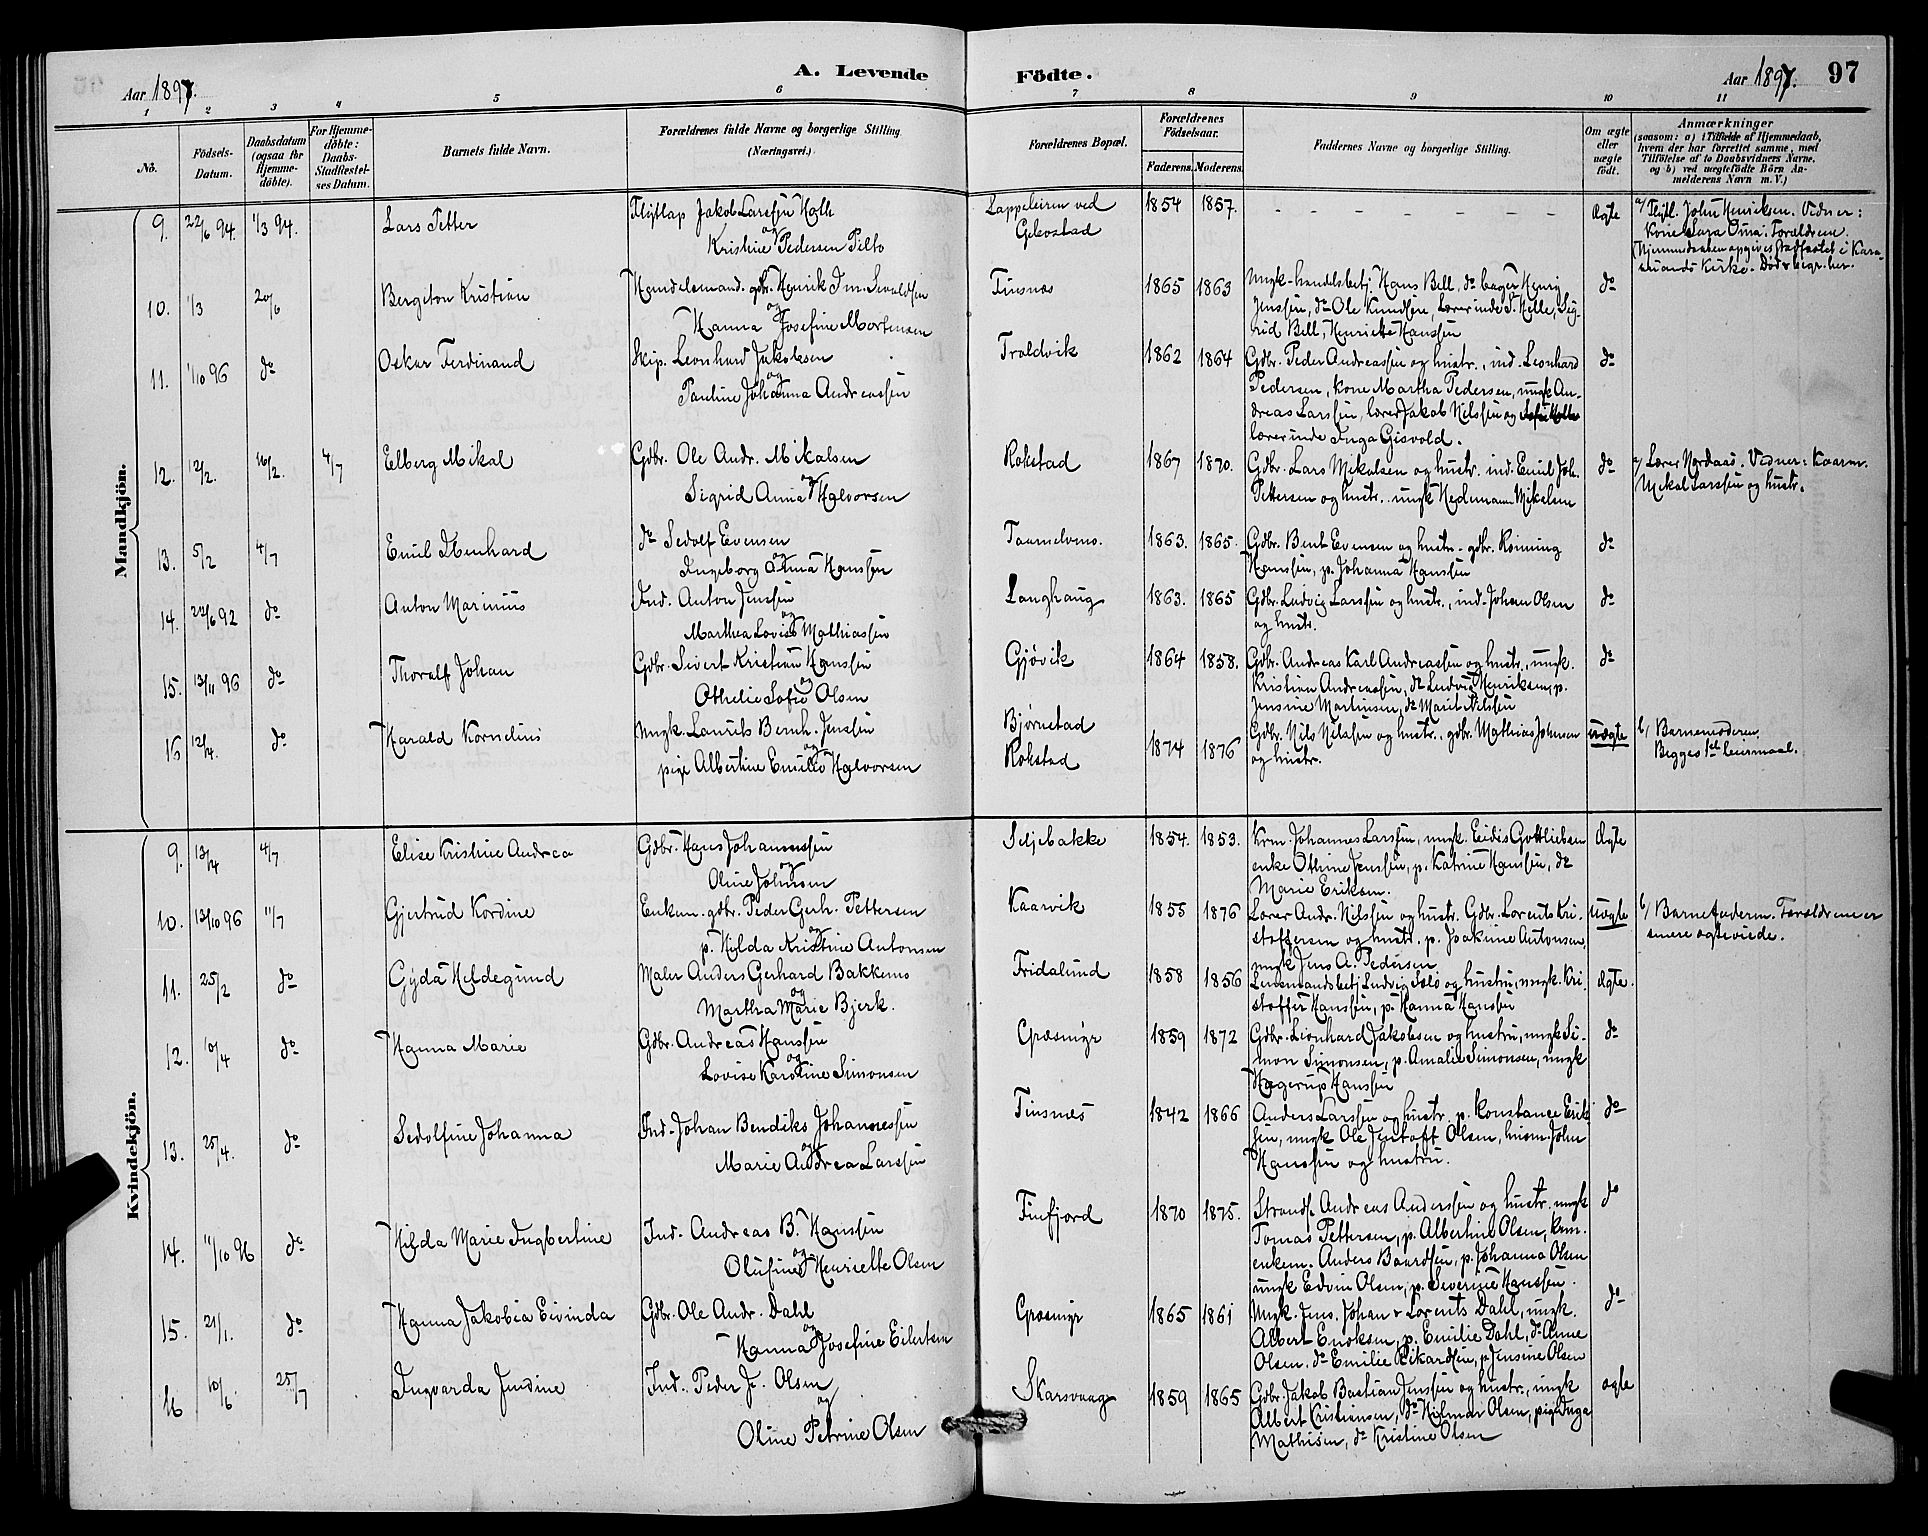 Aar 1897.
A. Levende
Födte.
Aar 1897.
97
1 2 3 4 5 6 7 8 9 10 11
No.
Födsels-
Datum.
Daabsdatum
(ogsaa for
Hjemme-
döbte).
For Hjemme-
döbte:
Daabs-
Stadfæstel-
ses Datum.
Barnets fulde Navn.
Forældrenes fulde Navne og borgerlige Stilling
(Næringsvei.)
Forældrenes Bopæl.
Forældrenes
Födselsaar.
Faderens. Moderens.
Faddernes Navne og borgerlige Stilling.
Om ægte
eller
uægte
födt.
Anmærkninger
(saasom: a) i Tilfælde af Hjemmedaab,
hvem der har forrettet samme, med
Tilföielse af to Daabsvidners Navne,
og b) ved uægtefödte Börn An-
melderens Navn m. V.)
Mandkjön.
9. 22/6 94. 1/3 94. Lars Petter
Flytlap Jakob Larssen
og
Kristine Pedersen Pilto
Lappeleiren ved
Gebostad
1854 1857.
Ægte
a/ Flytl. John Henriksen. Vidner:
Kone Sara Oma. Forældrene.
(Hjemmedaaben opgives stadfæstet i Kare-
suando Kirke. Död & begr. her.
10. 1/3 20/6 Bergiton Kristian
Handelsmand. gbr. Henrik Im. Sivaldsen
og
Hanna Josefine Mortensen
Finsnes
1865 1863
Ungk-handelsbetj. Hans Bell, do bager Henrij
Jenssen, do Ole Knudsen, Lærerinde S. Helle, Sig-
rid Bell, Henriette Hanssen
do
11. 1/10 96 do Oskar Ferdinand
Skip. Leonhard Jakobsen
og
Pauline Johanna Andreassen
Troldvik
1862 1864
Gdbr. Peder Andreassen og hustr., ind. Leonhard
Pedersen, kone Martha Pedersen, ungk An-
dreas Larssen, lærer Jakob Nilssen og
lærerinde Inga Gisvold.
do
12. 12/2. 16/2. 4/7 Elberg Mikal
Gdbr. Ole Andr. Mikalsen
og
Sigrid Anna Halvorsen
Rokstad
1867 1870.
Gdbr. Lars Mikalsen og hustr. ind. Emil Joh.
Pettersen og hustr. ungk Hedemann Mikalsen
do
a/ Lærer Nordaas. Vidner: Kaarm.
Mikal Larssen og hustr.
13. 5/2 4/7 Emil Ibenhard
do Sedolf Evensen
og
Ingeborg Anna Hanssen
Tommelvnes.
1863. 1865.
Gdbr. Bent Evensen og hustr. gdbr. Rönning
Hanssen, p. Johanna Hanssen
do
14. 22/6 92 do Anton Marinius
Ind. Anton Jenssen
og
Marthea Lovise Mathiassen
Langhaug
1863. 1865
Gdbr. Ludvig Larssen og hustr., ind. Johan Olsen
og hustr.
do
15. 13/11 96 do Thoralf Johan
Gdbr. Sivert Kristian Hanssen
og
Othelie Sofie Olsen
Gjøvik
1864 1858.
Gdbr. Andreas Karl Andreassen og hustr., ungk.
Kristian Andreassen, do Ludvig Henriksen, p.
Jensine Martinsen, do Marit Nilssen
do
16 12/4. do Harald Kornelius
Ungk. Laurits Bernh. Jenssen
og
pige Albertine Emilie Halvorsen
Bjørnstad
Rokstad
1874 1876
Gdbr. Nils Nilssen og hustr., gdbr. Mathias Johnsen
og hustr.
uægte
b/ Barnemoderen.
Begges 1ste Leiermaal.
Kvindekjön.
9. 13/4 4/7 Elise Kristine Andrea
Gdbr. Hans Johannessen
og
Oline Johnsen
Seljebakke
1854. 1853.
Krm. Johannes Larssen, ungk. Eidis Gottliebsen
enke Othine Jenssen, p. Katrine Hanssen, do
Marie Eriksen.
Ægte
10. 12/10 96 11/7 Gjertrud Kordine
Enkem. gdbr. Peder Gerh. Pettersen
og
p. Hilda Kristine Antonsen
Kaarvik
1855 1876
Lærer Andr. Nilssen og hustr. Gdbr. Lorents Kri-
stoffersen og hustr. p. Joakime Antonsen,
ungk Jens A. Pedersen
uægte
b/ Barnefaderen. Forældrene er
senere ægteviede.
11. 25/2 do Gyda Hildegund
Maler Anders Gerhard Bakkemo
og
Martha Marie Bjerk.
Fridalund
1858 1856
Lensmandsbetj Ludvig Solö og hustru, ungk. Kri-
stoffer Hanssen, p. Hanna Hanssen
Ægte.
12. 10/4 do Hanna Marie
Gdbr. Andreas Hanssen
og
Lovise Karoline Simonsen
Græsmyr
1859 1872
Gdbr. Leonhard Jakobsen og hustru, ungk Si-
mon Simonsen, p. Amalie Simonsen, ungk
Hagerup Hanssen
do
13. 25/4. do Sedolfine Johanna
Ind. Johan Bendiks Johannessen
og
Marie Andrea Larssen
Finsnes
1842 1866
Anders Larssen og hustr, p. Konstance Erik-
sen, ungk Ole Jentoft Olsen, husm. John
Hanssen og hustru.
do
14. 11/10 96 do Hilda Marie Ingbertine
Ind. Andreas B. Hanssen
og
Olufine Henriette Olsen
Finfjord
1870 1875.
Strands. Andreas Anderssen og hustr. ungk
Tomas Pettersen, p. Albertine Olsen, krm.
enkem. Anders Baardsen, p. Johanna Olsen
ungk Edvin Olsen, p. Severine Hanssen.
do
15. 21/1. do Hanna Jakobia Eivinda
Gdbr. Ole Andr. Dahl
og
Hanna Josefine Eilertsen
Græsmyr
1865 1861
Ungk. Jens Johan & Lorents Dahl, ungk.
Albert Enoksen, p. Emilie Dahl, do Anne
Olsen, do Emilie Rikardsen, p Jensine Olsen
do
16 10/6 25/7 Ingvarda Jendine
Ind. Peder J. Olsen
og
Oline Petrine Olsen
Skarsvaag
1859 1865
Gdbr. Jakob Bastian Jenssen og hustr., ungk
Albert Kristiansen, do Hilmar Olsen, pige Inga
Mathisen, do Kristine Olsen
ægte